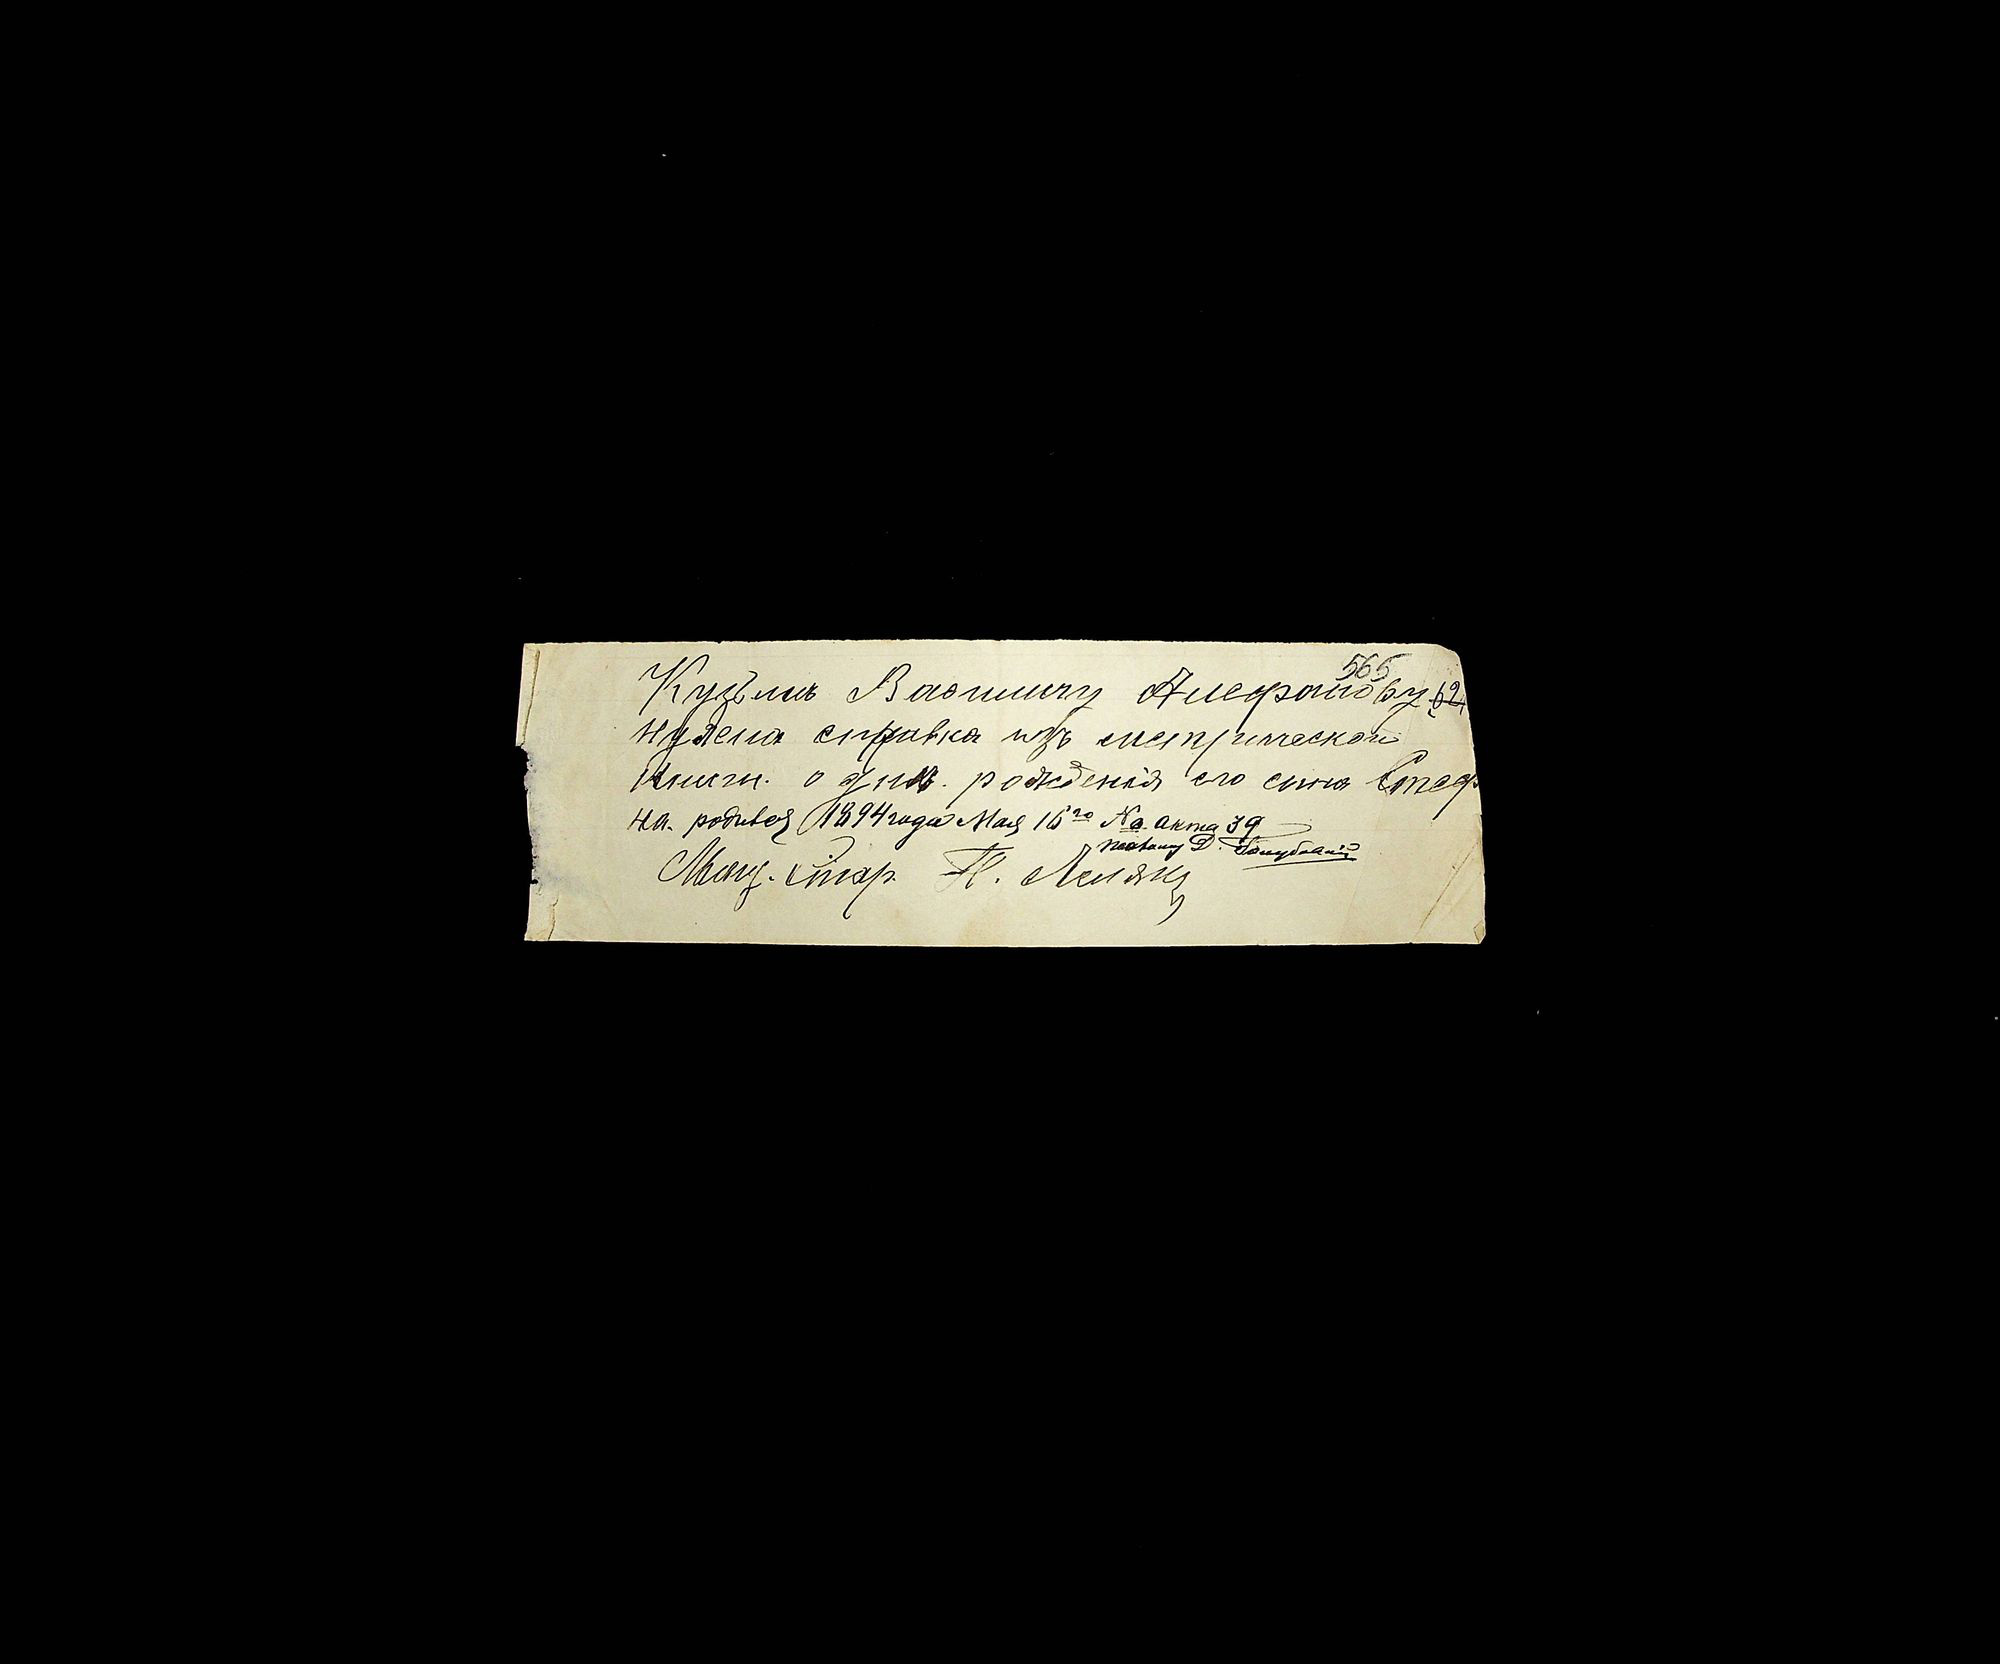 565
Кузьмѣ Васильичу Алефанову 62
нужена справка изъ метрической
книги. о днѣ. рожденія его сына Стеф
на. родився 1894 года Мая 16го No акта 39
Д.
Мѣщ. Стар. П.